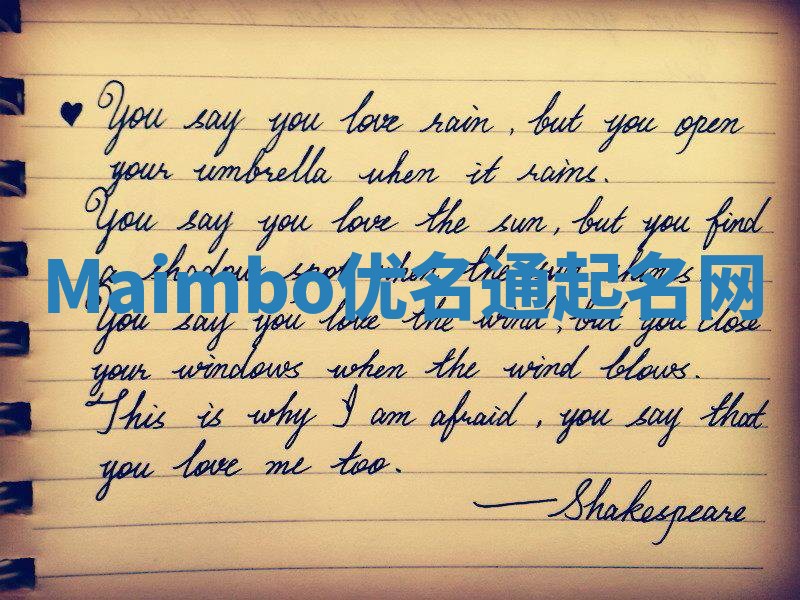 ♥ You say you love rain, but you open
your umbrella when it rains.
You say you love the sun, but you find
a shadow spot when the sun shines
Maimbo优名通起名网
You say you love the wind, but you close
your windows when the wind blows.
This is why I am afraid, you say that
you love me too.
— Shakespeare